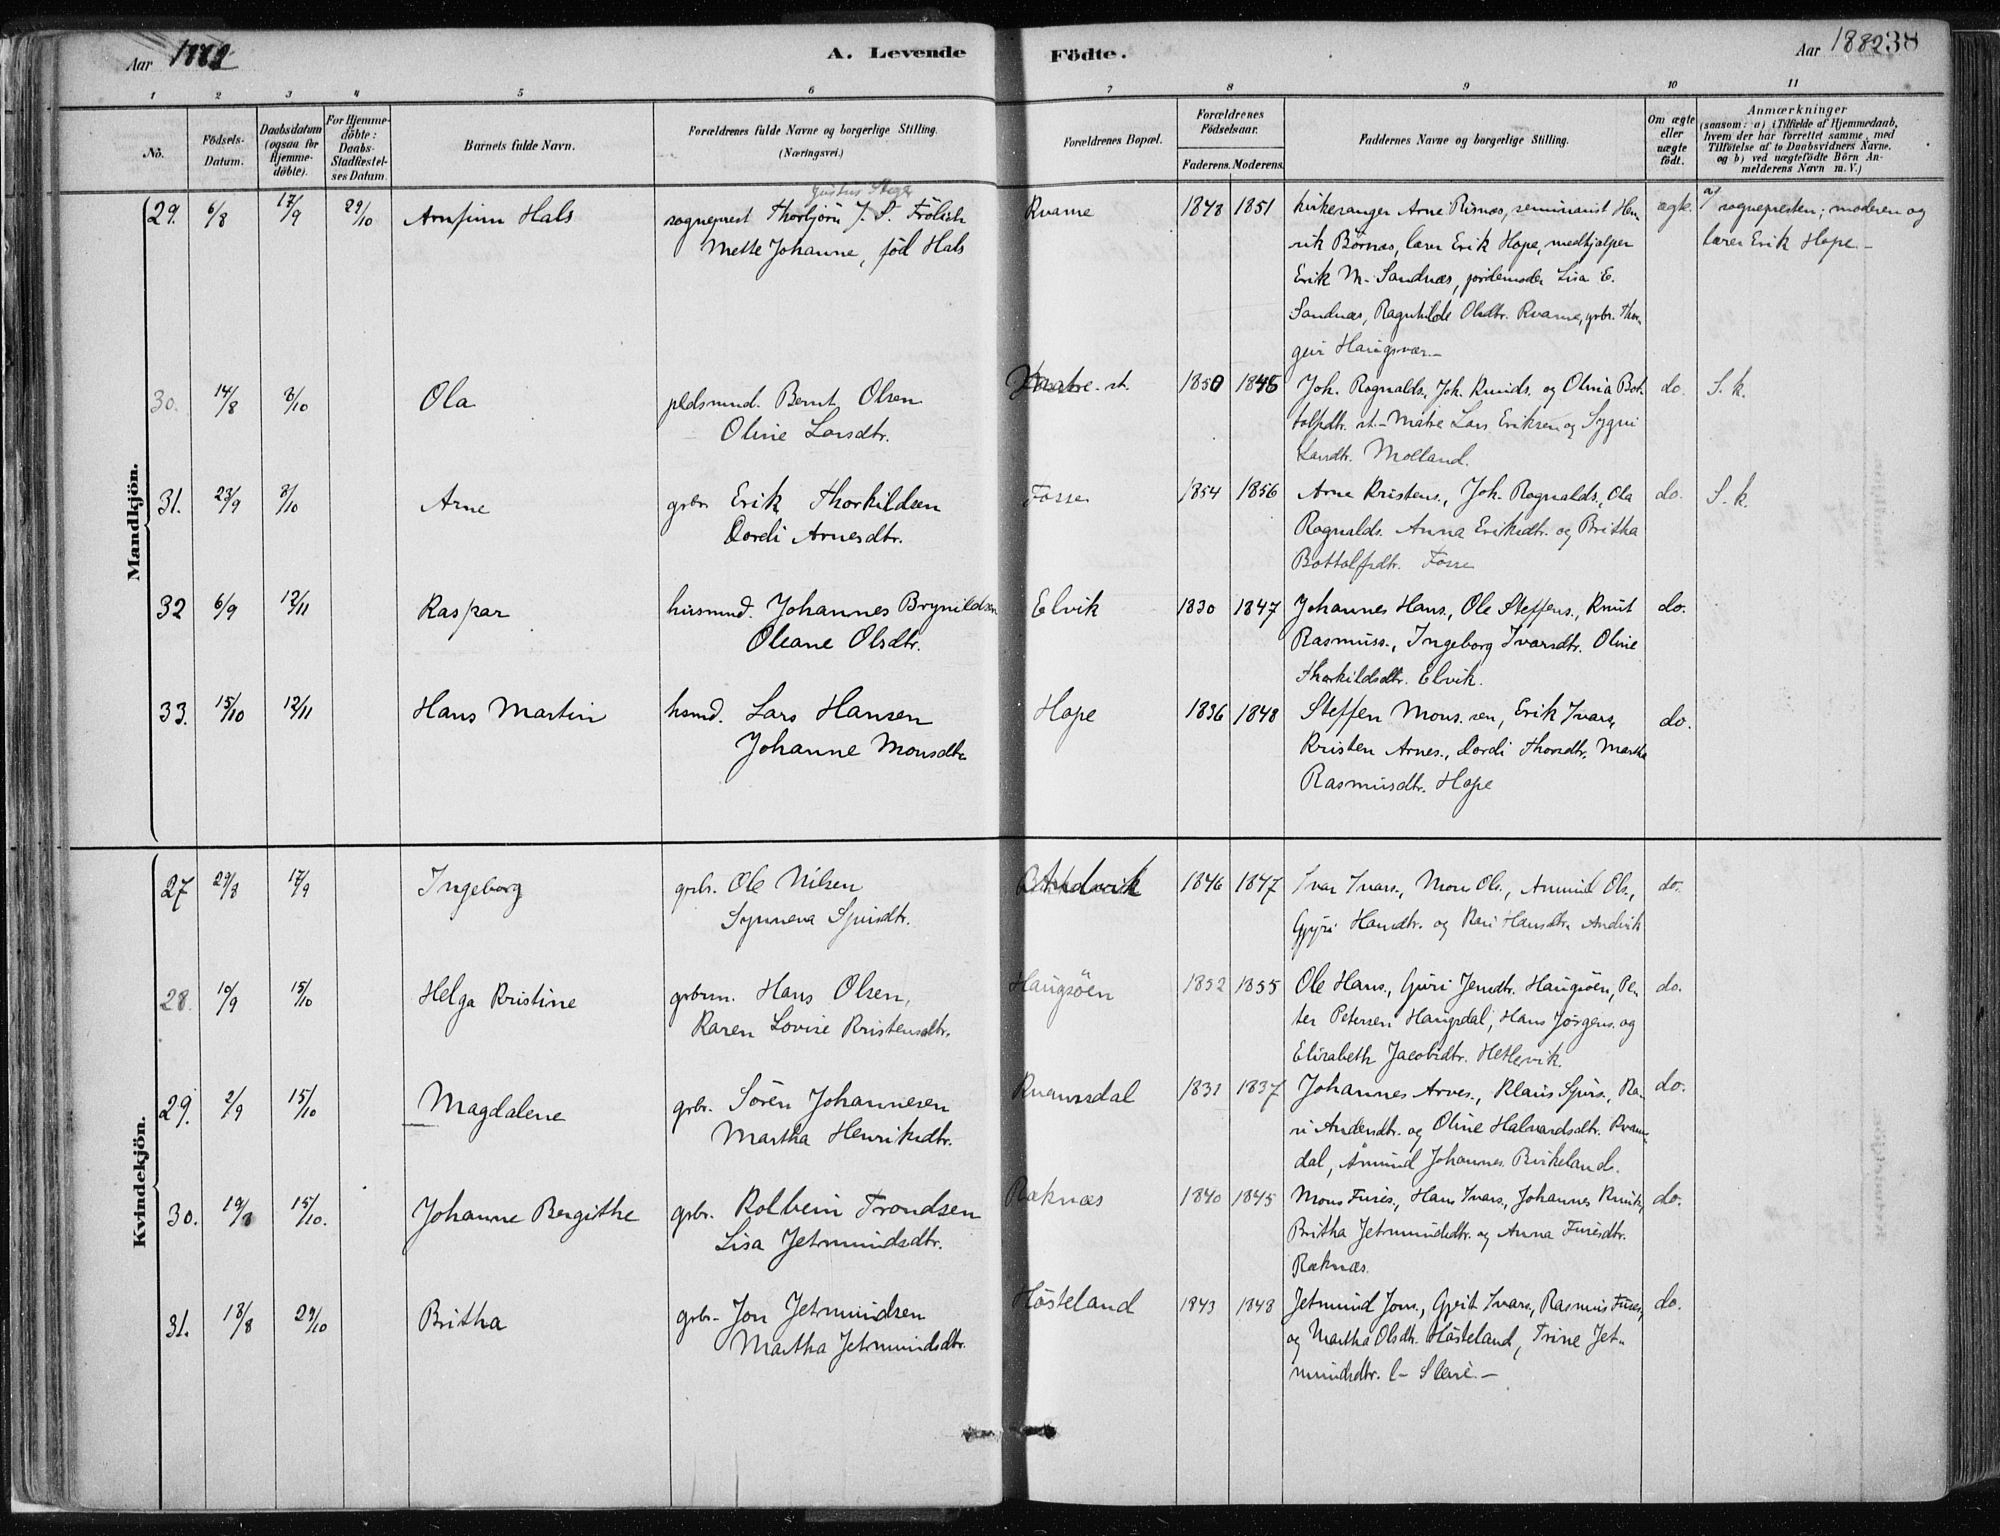 Aar 1882
A. Levende Födte.
Aar 1882 38
1 2 3 4 5 6 7 8 9 10 11
No.
Födsels-Datum.
Daabsdatum (ogsaa for Hjemme-döbte).
For Hjemme-döbte: Daabs-Stadfæstel-ses Datum.
Barnets fulde Navn.
Forældrenes fulde Navne og borgerlige Stilling.
(Næringsvei.)
Forældrenes Bopæl.
Forældrenes Födselsaar.
Faderens. Moderens.
Faddernes Navne og borgerlige Stilling.
Om ægte eller uægte födt.
Anmærkninger
(saasom: a) i Tilfælde af Hjemmedaab, hvem der har forrettet samme, med Tilföielse af to Daabsvidners Navne, og b) ved uægtefödte Börn An-melderens Navn m. V.)
Mandkjön.
Justus Steger
29. 6/8 17/9 29/10 Arnfinn Hals sogneprest Thorbjörn J. S. Frölich Kvame 1848 1851 kirkesanger Arne Risnæs, seminarist Hen- ægte. a/ sognepresten; moderen og
Mette Johanne, föd Hals rik Börnæs, lærer Erik Hope, medhjælper lærer Erik Hope.-
Erik M. Sandnæs, jordemoder Lisa E.
Sandnæs, Ragnhilde Olsdtr. Kvame, grbr. Thor-
geir Haugsvær.-
30. 14/8 8/10 Ola pldsmnd. Bernt Olsen Matre. st. 1850 1846 Joh. Rognalds., Joh. Knuds. og Olina Bot- do. S. k.
Oline Larsdtr. tolfsdtr. st- Matre Lars Eriksen og Sygni
Larsdtr. Molland.
31. 23/9 8/10 Arne grbr. Erik Thorkildsen Fosse 1854 1856 Arne Kristens., Joh. Rognalds., Ola do. S. k.
Dordi Arnesdtr. Rognalds. Anna Eriksdtr. og Britha
Bottolfsdtr. Fosse
32 6/9 12/11 Kaspar husmnd. Johannes Brynildsen Elvik 1830 1847 Johannes Hans., Ole Steffens., Knut do.
Oleane Olsdtr. Rasmuss., Ingeborg Ivarsdtr. Oline
Thorkildsdtr. Elvik.
33. 15/10 12/11 Hans Martin hsmd. Lars Hansen Hope 1836 1848 Steffen Monssen, Erik Ivars., do.
Johanne Monsdtr. Kristen Arnes., Dordi Thorsdtr. Martha
Rasmusdtr. Hope
Kvindekjön.
27 29/8 17/9 Ingeborg grbr. Ole Nilsen Andvik 1846 1847 Ivar Ivars., Mons Ols., Amund Ols., do.
Synneva Sjursdtr. Gjyri Hansdtr. og Kari Hansdtr. Andvik
28. 10/9 15/10 Helga Kristine grbrm. Hans Olsen, Haugsöen 1852 1855 Ole Hans., Guri Jensdtr. Haugsöen, Pe- do.
Karen Lovise Kristensdtr. ter Petersen Haugsdal, Hans Jörgens. og
Elizabeth Jacobsdtr. Hetlevik.
29. 2/9 15/10 Magdalene grbr. Sören Johannesen Kvamsdal 1831 1837 Johannes Arnes., Klaus Sjurs., Ka- do.
Martha Henriksdtr. ri Andersdtr. og Oline Halvardsdtr. Kvams-
dal, Amund Johannes. Birkeland.
30. 19/8 15/10. Johanne Bergithe grbr. Kolbein Trondsen Raknæs 1840 1845 Mons Furés, Hans Ivars., Johannes Knuts., do.
Lisa Jetmundsdtr. Britha Jetmundsdtr. og Anna Furésdtr.
Raknæs.
31. 18/8 29/10 Britha grbr. Jon Jetmundsen Hösteland 1843 1848 Jetmund Jons., Gjert Ivars., Rasmus Furés, do.
Martha Jetmundsdtr. og Martha Olsdtr. Hösteland, Trine Jet-
mundsdtr.